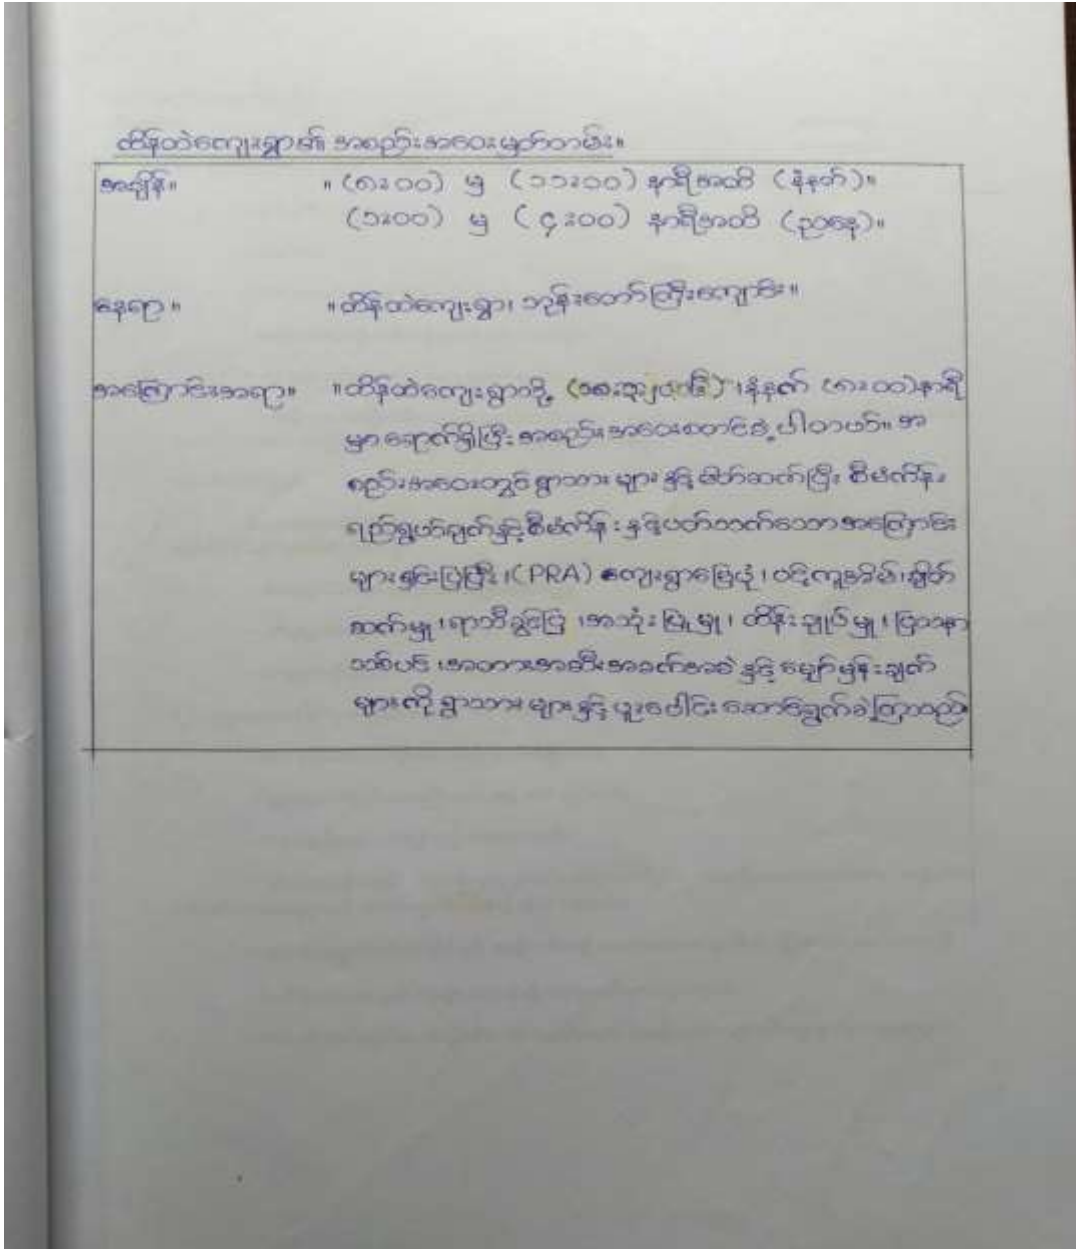 ထိန်ထဲကျေးရွာ၏ အစည်းအဝေးမှတ်တမ်း။
အချိန်။ ။ (၈း၀၀) မှ (၁၁း၀၀) နာရီအထိ (နံနက်)။
(၁း၀၀) မှ (၄း၀၀) နာရီအထိ (ညနေ)။
နေရာ။ ။ထိန်ထဲကျေးရွာ၊ ဘုန်းတော်ကြီးကျောင်း။
အကြောင်းအရာ။ ။ထိန်ထဲကျေးရွာသို့ ၊နံနက် (၈း၀၀)နာရီ
မှာ ရောက်ရှိပြီး အစည်းအဝေးစတင်ခဲ့ပါတယ်။ အ
စည်းအဝေးတွင် ရွာသားများ နှင့် မိတ်ဆက်ပြီး စီမံကိန်း
ရည်ရွယ်ချက်နှင့် စီမံကိန်း နှင့်ပတ်သက်သော အကြောင်း
များ ရှင်းပြပြီး၊ (PRA) ကျေးရွာမြေပုံ၊ ဝင်ငွေ ၊ချိတ်
ဆက်မှု ၊ရာသီခွင်ပြ ၊အသုံးပြုမှု ၊ ထိန်းချုပ်မှု ၊ပြဿနာ
သစ်ပင် ၊အတားအဆီးအခက်အခဲ နှင့် မျှော်မှန်းချက်
များကို ရွာသားများ နှင့် ပူးပေါင်း ဆောင်ရွက်ခဲ့ကြသည်။